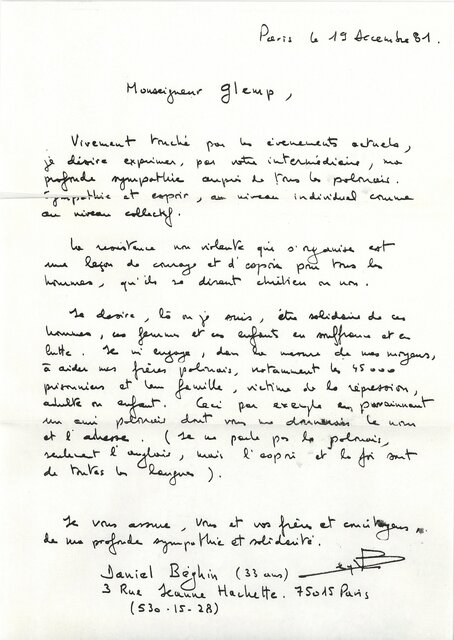 Paris le 19 decembre 81.
Monseigneur Glemp,
Vivement touché par les évenements actuels,
je désire exprimer, par votre intermédiaire, ma
profonde sympathie auprès de tous les polonais.
Sympathie et espoir, au niveau individuel comme
au niveau collectif.
La resistance non violente qui s'organise est
une leçon de courage et d'espoir pour tous les
hommes, qu'ils se disent chrétien ou non.
Je desire, là où je suis, être solidaire de ces
hommes, ces femmes et ces enfants en souffrance et en
lutte. Je m'engage, dans la mesure de mes moyens,
à aider mes frères polonais, notamment les 45000
prisonniers et leur famille, victime de la répression,
adulte ou enfant. Ceci par exemple en parrainant
un ami polonais dont vous me donneriez le nom
et l'adresse. (Je ne parle pas le polonais,
seulement l'anglais, mais l'espoir et la foi sont
de toutes les langues).
Je vous assure, vous et vos frères et concitoyens
de ma profonde sympathie et solidarité.
Daniel Béghin (33 ans)
3 Rue Jeanne Hachette. 75015 Paris
(530-15-28)